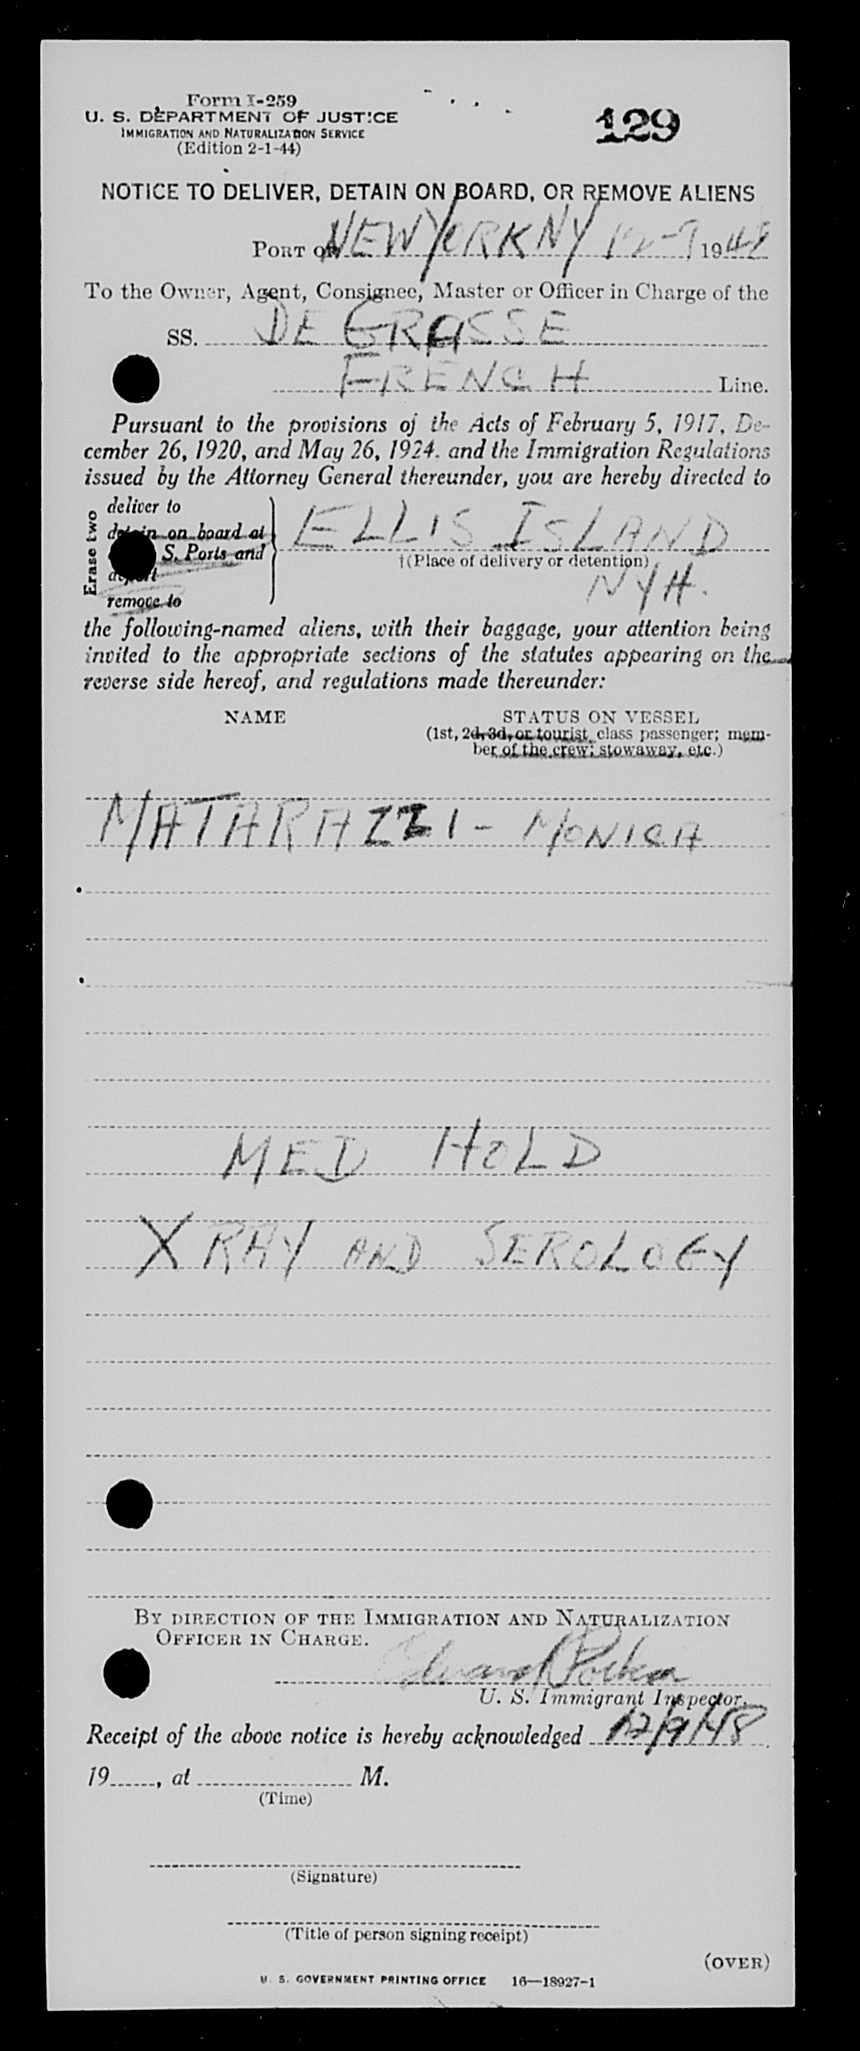 Form I-259
U. S. DEPARTMENT OF JUSTICE
IMMIGRATION AND NATURALIZATION SERVICE
(Edition 2-1-44)
129
NOTICE TO DELIVER, DETAIN ON BOARD, OR REMOVE ALIENS
PORT OF NEW YORK NY 12-9 1948
To the Owner, Agent, Consignee, Master or Officer in Charge of the
SS. DE GRASSE
FRENCH Line.
Pursuant to the provisions of the Acts of February 5, 1917, De-
cember 26, 1920, and May 26, 1924, and the Immigration Regulations
issued by the Attorney General thereunder, you are hereby directed to
Erase two
deliver to
detain on board at
S. Ports and
deport
remove to
ELLIS ISLAND
†(Place of delivery or detention)
NYH.
the following-named aliens, with their baggage, your attention being
invited to the appropriate sections of the statutes appearing on the
reverse side hereof, and regulations made thereunder:
NAME STATUS ON VESSEL
(1st, 2d, 3d, or tourist class passenger; mem-
ber of the crew; stowaway, etc.)
MATARAZZI - MONICA
MED HOLD
X RAY AND SEROLOGY
BY DIRECTION OF THE IMMIGRATION AND NATURALIZATION
OFFICER IN CHARGE.
Edward
U. S. Immigrant Inspector.
Receipt of the above notice is hereby acknowledged 12/9/48
19, at M.
(Time)
(Signature)
(Title of person signing receipt)
(OVER)
U. S. GOVERNMENT PRINTING OFFICE 16—18927-1